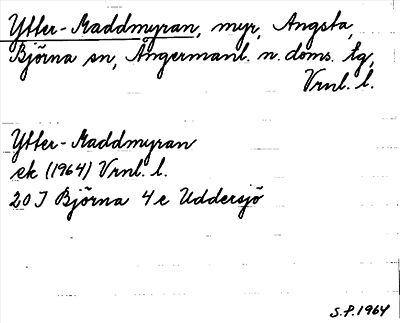 Ytter-Maddmyran, myr, Angsta,
Björna sn, Ångermanl. n. doms. tg,
Vrnl. l.
Ytter-Maddmyran
ek (1964) Vrnl. l.
20 J Björna 4 e Uddersjö
S.P. 1964